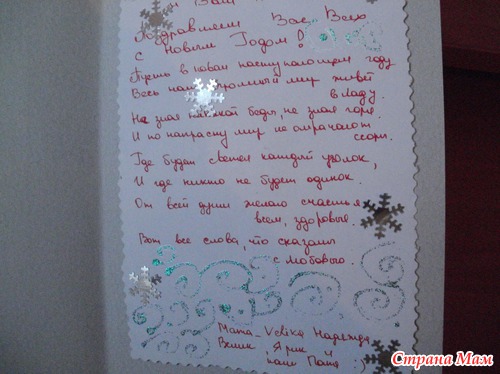 и Ваш
Поздравляем Вас Всех
с Новым Годом!
Пусть в новом наступающем году
Весь наш огромный мир живёт
в ладу.
Не зная никакой беды, не зная горя.
И по напрасну мир не омрачают
ссоры.
Где будет светел каждый уголок,
И где никто не будет одинок.
От всей души желаю счастья
всем, здоровье.
Вот все слова, что сказаны
с любовью.
Мама-Velika Надежда
Ярик и
папа :)
Страна Мам